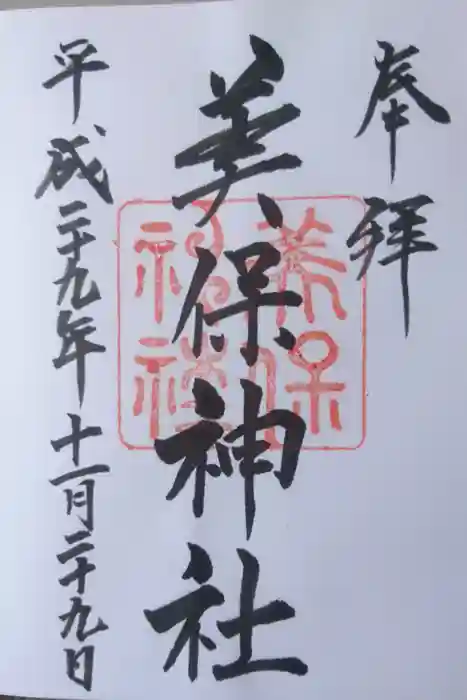 奉拝
美保神社
平成二十九年十一月二十九日
美保
神社